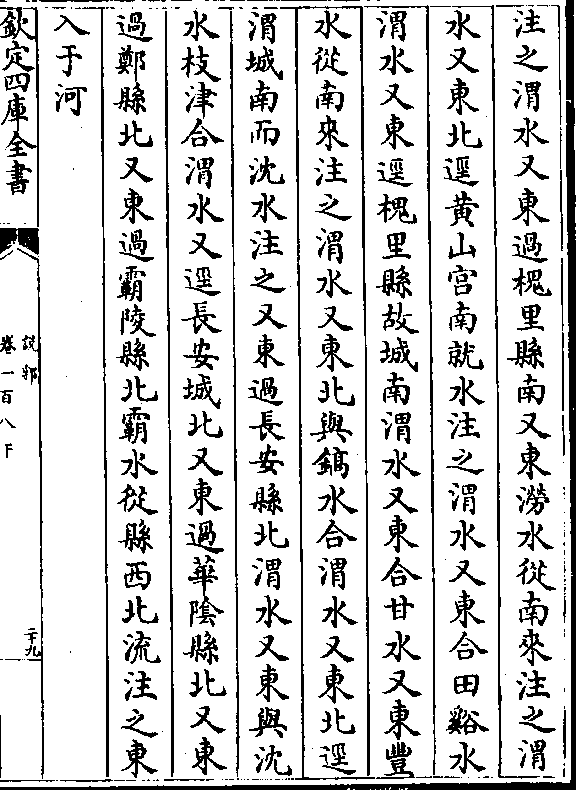 注之渭水又東過槐里縣南又東澇水從南來注之渭
水又東北逕黄山宫南就水注之渭水又東合田谿水
渭水又東逕槐里縣故城南渭水又東合甘水又東豐
水從南來注之渭水又東北與鎬水合渭水又東北逕
渭城南而沈水注之又東過長安縣北渭水又東與沈
水枝津合渭水又逕長安城北又東過華陰縣北又東
過鄭縣北又東過霸陵縣北霸水從縣西北流注之東
入于河
欽定四庫全書
説郛
卷一百八下
二十九